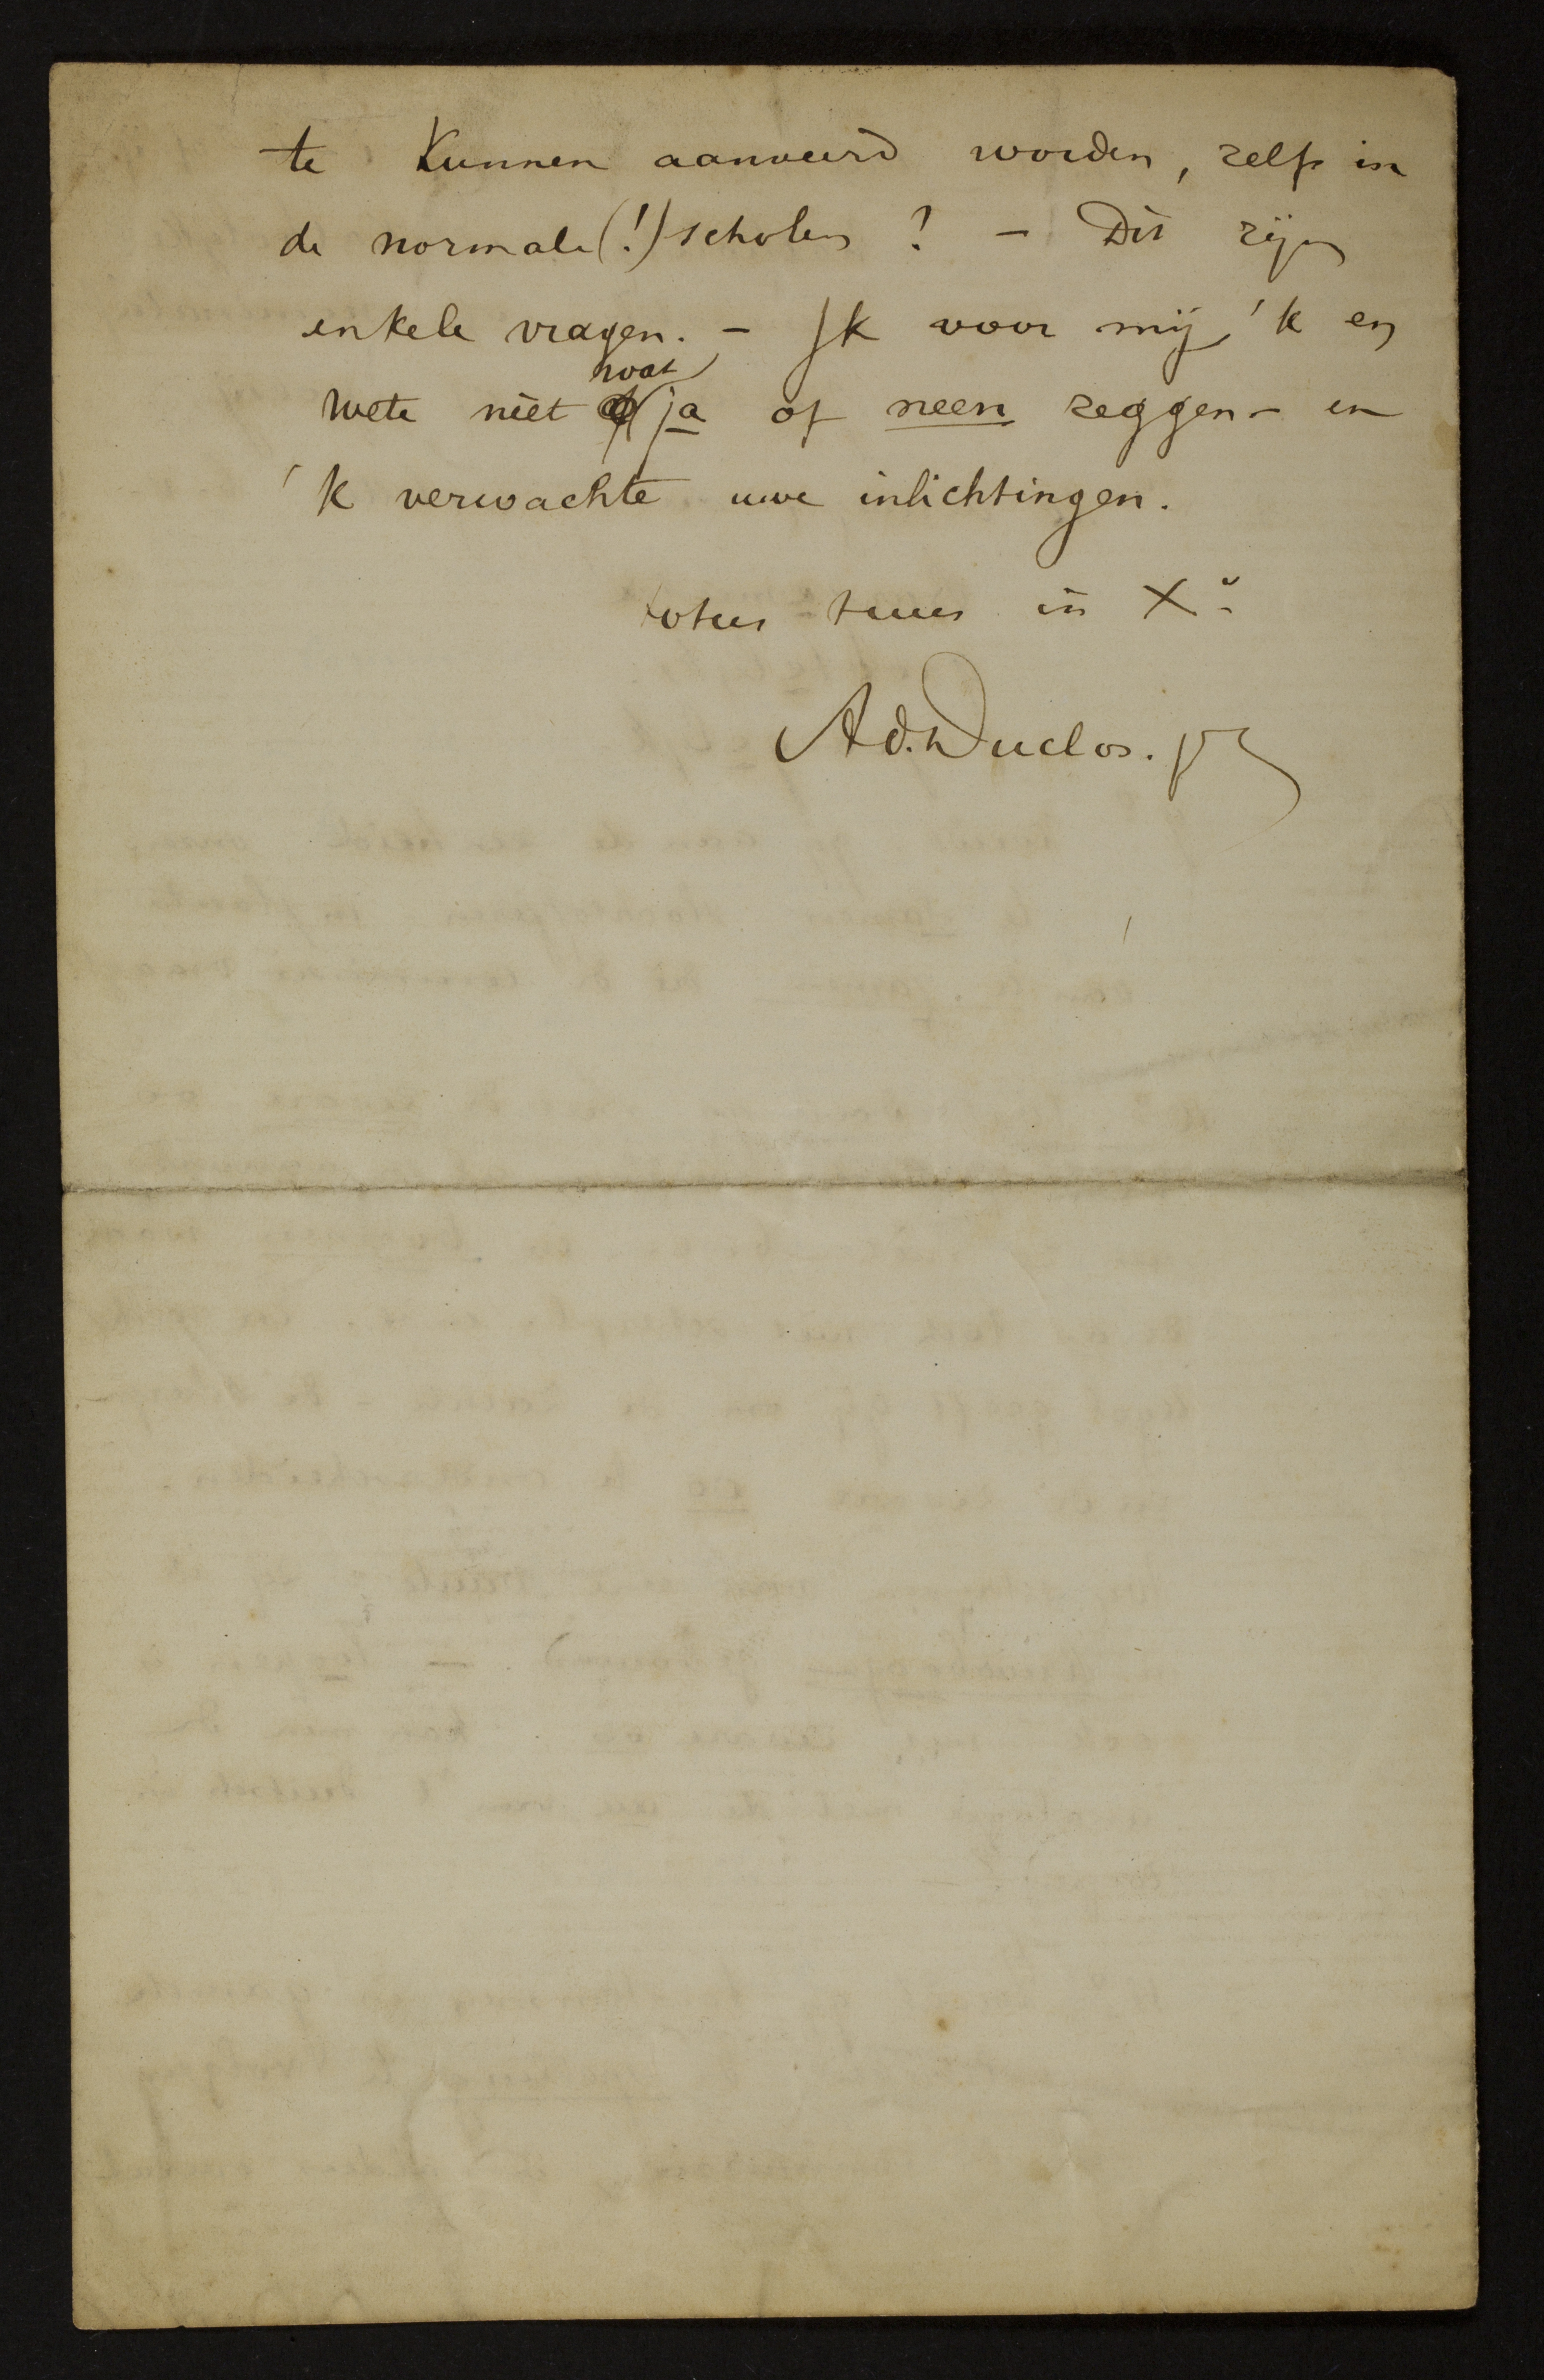 te kunnen aanveerd worden, zelfs in
de normale(!) scholen? – Dit zijn
enkele vragen. – Ik voor mij 'k en
wete niet wat ja of neen zeggen – en
'k verwachte uwe inlichtingen.
totus tuus in Xº
Ad. Duclos. pr